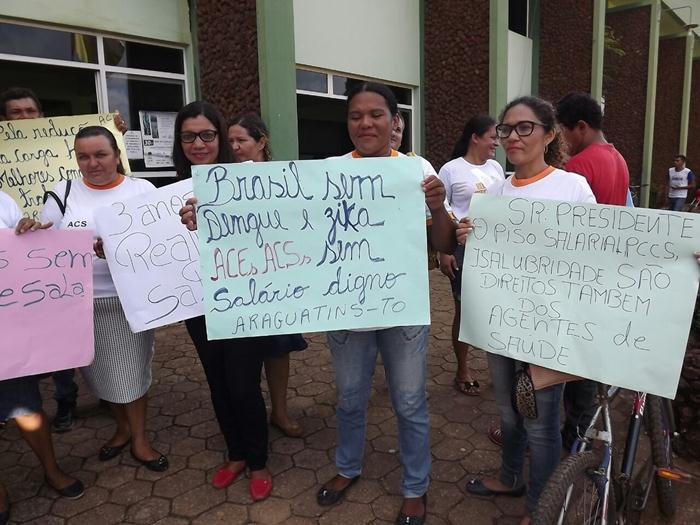 Pela redu
a Carga
Melhores Con
ACS
s sem
e Sala
3 anos
Rea
Sa
Brasil sem
Dengue e zika
ACEs ACSs sem
Salário digno
ARAGUATINS-TO
SR. PRESIDENTE
O PISO SALARIAL, PCCS,
ISALUBRIDADE SÃO
DIREITOS TAMBEM
DOS
AGENTES de
SAÚDE